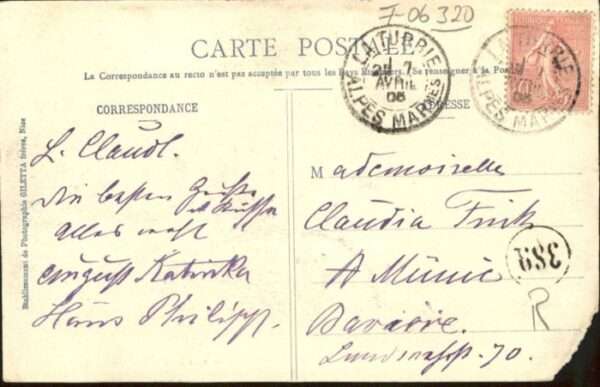 7-06 320
CARTE POSTALE
La Correspondance au recto n'est pas acceptée par tous les Pays Étrangers. (Se renseigner à la Poste)
CORRESPONDANCE
ADRESSE
LA TURBIE
7
AVRIL
06
ALPES MARMES
Etablissement de Photographie GILETTA frères, Nice
L. Claudl.
die besten Grüße
alles
august Katinka
Hans Philipp.
Mademoiselle
Claudia Fink
A Münic
Bavière.
70.
389
R